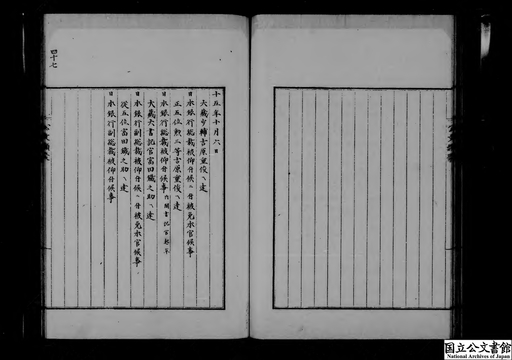 十五年十月六日
大蔵少輔吉原重俊ヘ達
日本銀行総裁被仰付候ニ付被免本官候事
正五位勲三等吉原重俊ヘ達
日本銀行総裁被仰付候事
大蔵大書記官富田鉄之助ヘ達
日本銀行副総裁被仰付候ニ付被免本官候事
従五位富田鉄之助ヘ達
日本銀行副総裁被仰付候事
四十七
国立公文書館
National Archives of Japan